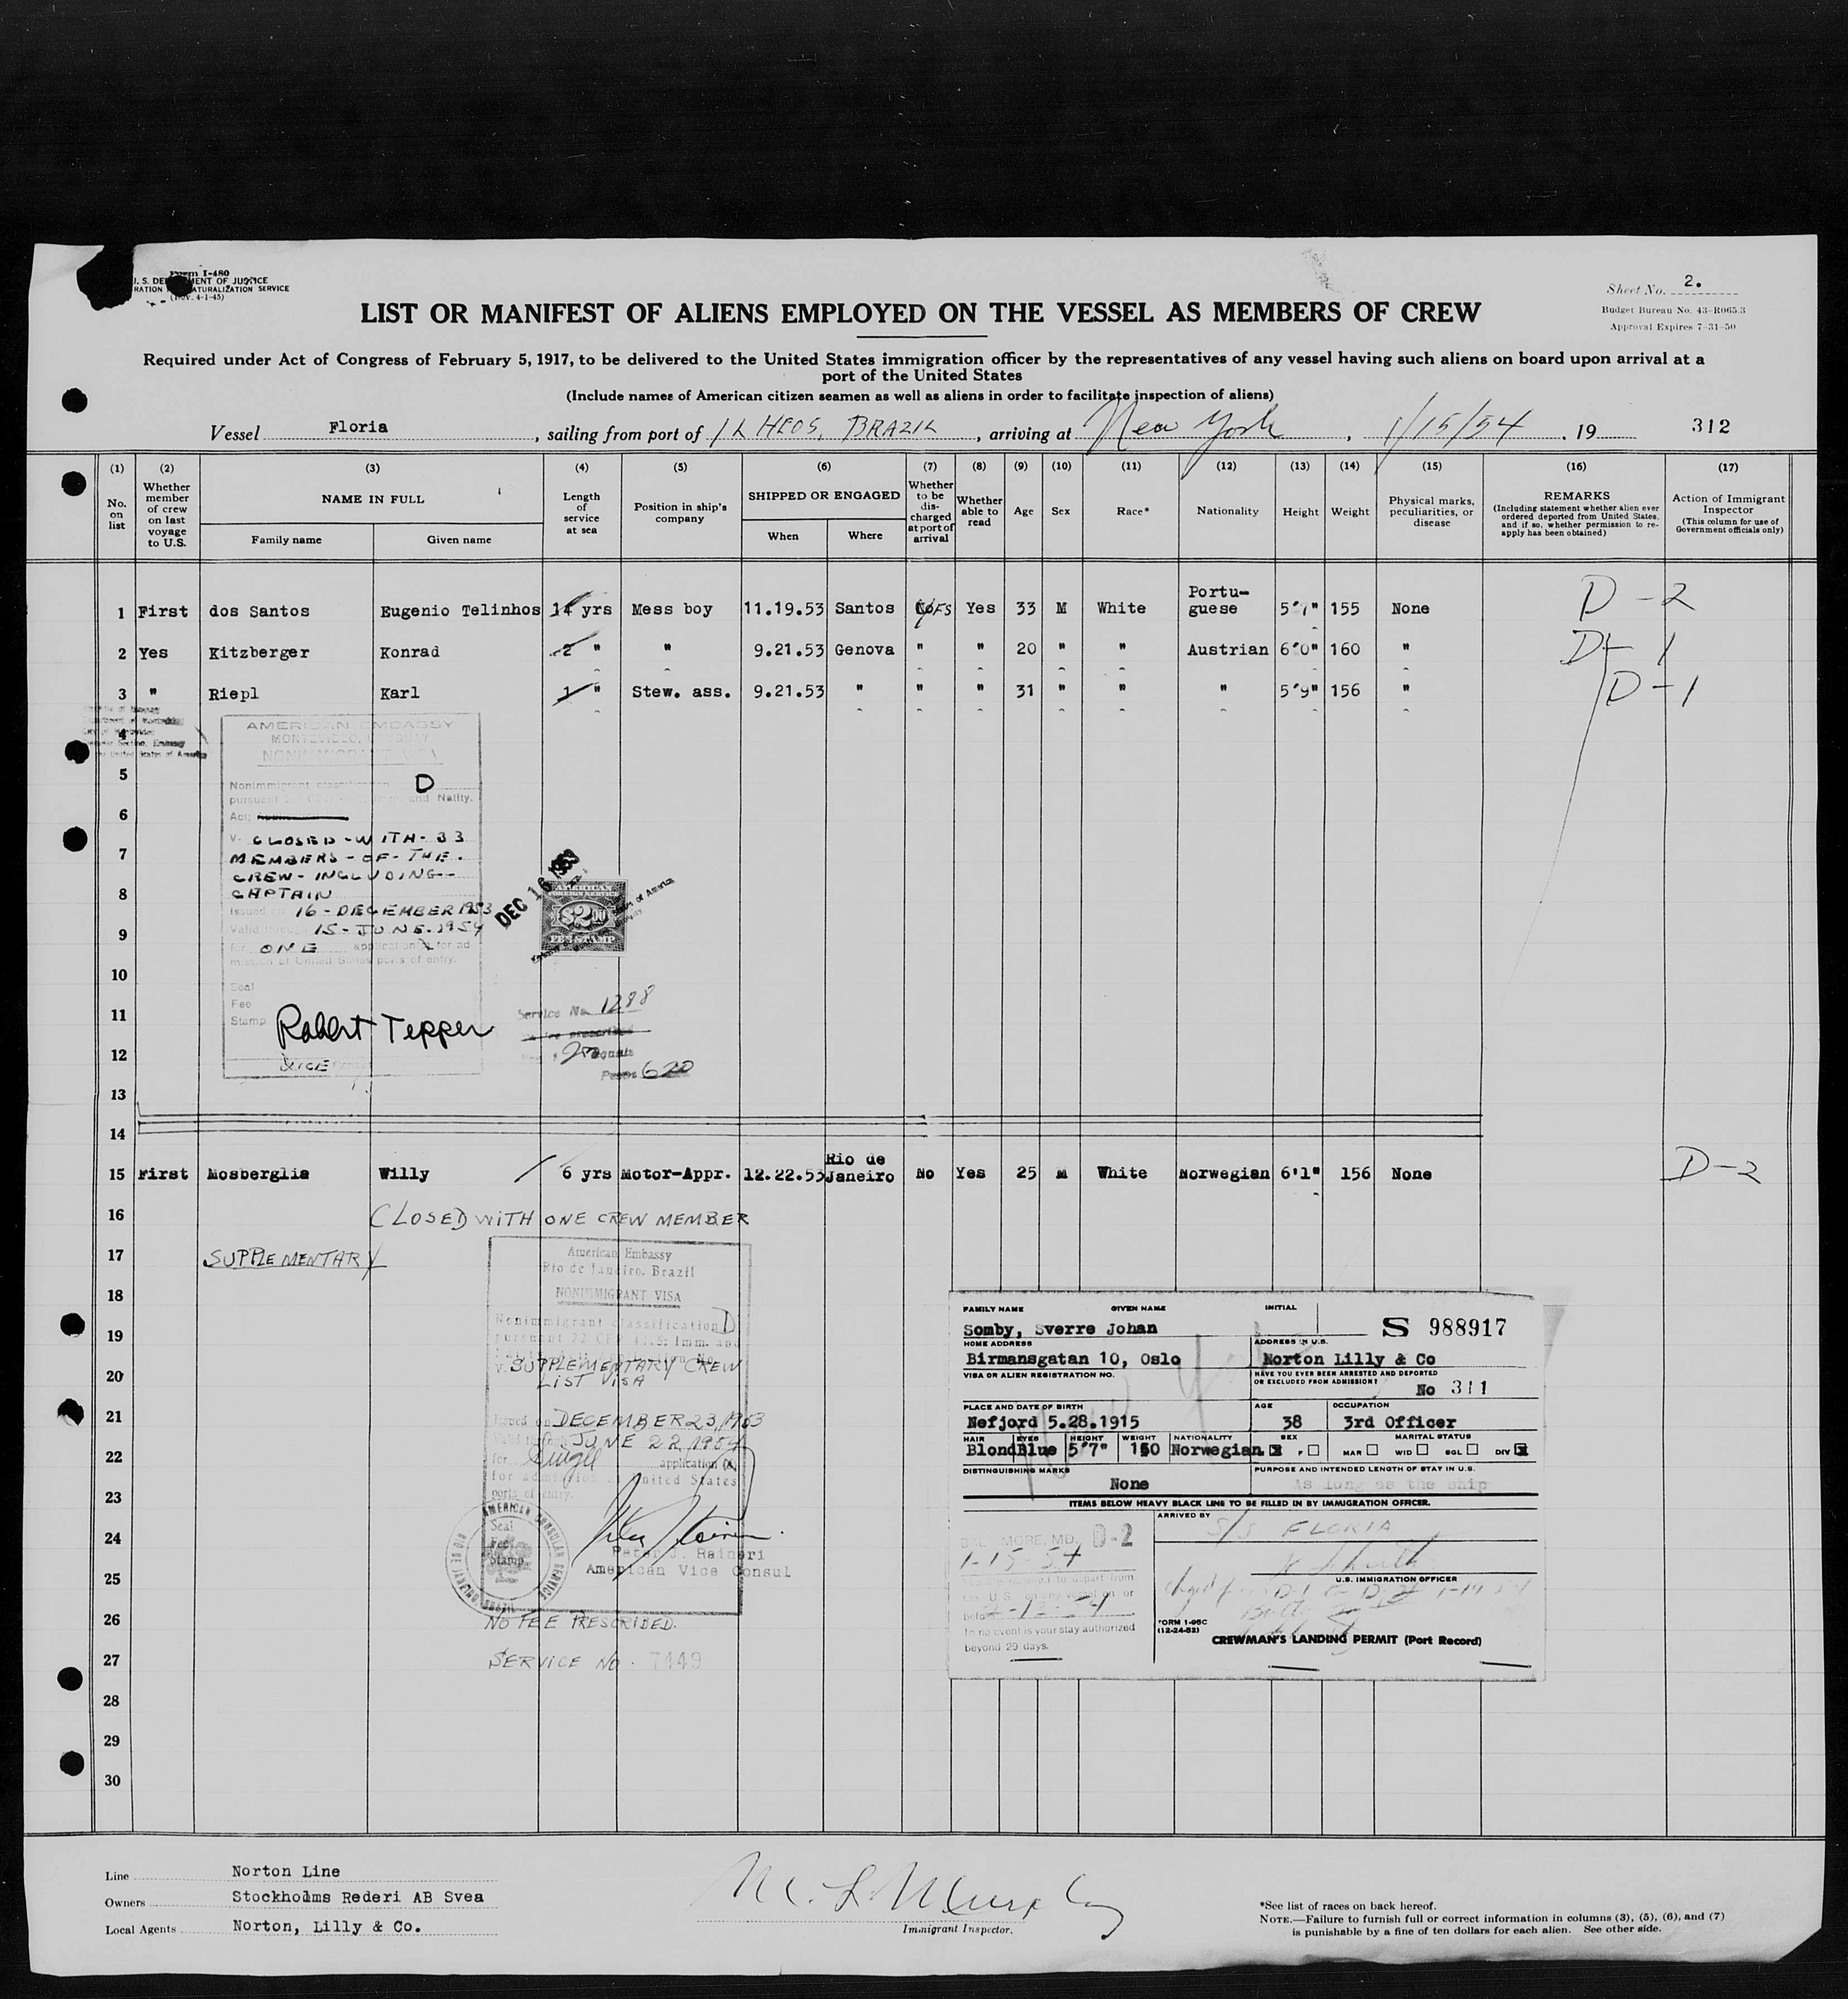 Form I-480
U. S. DEPARTMENT OF JUSTICE
IMMIGRATION AND NATURALIZATION SERVICE
(Rev. 4-1-45)
Sheet No. 2.
Budget Bureau No. 43-R065.3
Approval Expires 7-31-50
LIST OR MANIFEST OF ALIENS EMPLOYED ON THE VESSEL AS MEMBERS OF CREW
Required under Act of Congress of February 5, 1917, to be delivered to the United States immigration officer by the representatives of any vessel having such aliens on board upon arrival at a
port of the United States
(Include names of American citizen seamen as well as aliens in order to facilitate inspection of aliens)
Vessel Floria, sailing from port of ILHEOS, BRAZIL, arriving at New York, 1/15/54, 19 312
(1) (2) (3) (4) (5) (6) (7) (8) (9) (10) (11) (12) (13) (14) (15) (16) (17)
No. on list
Whether member of crew on last voyage to U.S.
NAME IN FULL
Family name Given name
Length of service at sea
Position in ship's company
SHIPPED OR ENGAGED
When Where
Whether to be discharged at port of arrival
Whether able to read
Age
Sex
Race*
Nationality
Height
Weight
Physical marks, peculiarities, or disease
REMARKS
(Including statement whether alien ever ordered deported from United States, and if so, whether permission to re-apply has been obtained)
Action of Immigrant Inspector
(This column for use of Government officials only)
1 First dos Santos Eugenio Telinhos 14 yrs Mess boy 11.19.53 Santos Yes 33 M White Portu-guese 5'7" 155 None D-2
2 Yes Kitzberger Konrad 2 " " 9.21.53 Genova " " 20 " " Austrian 6'0" 160 " D-1
3 " Riepl Karl 1 " Stew. ass. 9.21.53 " " " 31 " " " 5'9" 156 " D-1
4
5
6
7
8
9
10
11
12
13
14
AMERICAN EMBASSY
MONTEVIDEO, URUGUAY
NONIMMIGRANT VISA
Nonimmigrant classification D
CLOSED-WITH-33
MEMBERS-OF-THE-
CREW-INCLUDING-
CAPTAIN
Issued on 16-DECEMBER 1953
Valid thru 15-JUNE-1954
for ONE application for ad
mission at United States ports of entry.
Seal
Fee
Stamp
Robert Tepper
VICE
DEC 16 1953
AMERICAN
FOREIGN SERVICE
$2.00
FEE STAMP
Service No. 1288
Pesos 620
15 First Mosberglia Willy 6 yrs Motor-Appr. 12.22.53 Rio de Janeiro No Yes 25 M White Norwegian 6'1" 156 None D-2
16
CLOSED WITH ONE CREW MEMBER
17
SUPPLEMENTARY
18
19
20
21
22
23
24
25
26
27
28
29
30
American Embassy
Rio de Janeiro, Brazil
NONIMMIGRANT VISA
Nonimmigrant classification D
pursuant 22 CFR 41.5; Imm. and
SUPPLEMENTARY CREW
LIST VISA
Issued on DECEMBER 23, 1953
Valid through JUNE 22, 1954
for Single application
for admission at United States
ports of entry.
Seal
Fee
Stamp
AMERICAN CONSULAR SERVICE
RIO DE JANEIRO, BRAZIL
Peter J. Raineri
American Vice Consul
NO FEE PRESCRIBED.
SERVICE NO. 7449
FAMILY NAME GIVEN NAME INITIAL
Somby, Sverre Johan
S 988917
HOME ADDRESS
Birmansgatan 10, Oslo
ADDRESS IN U.S.
Norton Lilly & Co
VISA OR ALIEN REGISTRATION NO.
HAVE YOU EVER BEEN ARRESTED AND DEPORTED
OR EXCLUDED FROM ADMISSION?
No 311
PLACE AND DATE OF BIRTH
Nefjord 5.28.1915
AGE
38
OCCUPATION
3rd Officer
HAIR EYES HEIGHT WEIGHT NATIONALITY SEX MARITAL STATUS
Blond Blue 5'7" 150 Norwegian F MAR WID SGL DIV
DISTINGUISHING MARKS
None
PURPOSE AND INTENDED LENGTH OF STAY IN U.S.
As long as the ship
ITEMS BELOW HEAVY BLACK LINE TO BE FILLED IN BY IMMIGRATION OFFICER.
BALTIMORE, MD. D-2
1-15-54
ARRIVED BY
S/S FLORIA
U.S. IMMIGRATION OFFICER
In no event is your stay authorized
beyond 29 days.
FORM I-95C
(12-24-52)
CREWMAN'S LANDING PERMIT (Port Record)
Line Norton Line
Owners Stockholms Rederi AB Svea
Local Agents Norton, Lilly & Co.
M. L. Murphy
Immigrant Inspector.
*See list of races on back hereof.
NOTE.—Failure to furnish full or correct information in columns (3), (5), (6), and (7)
is punishable by a fine of ten dollars for each alien. See other side.